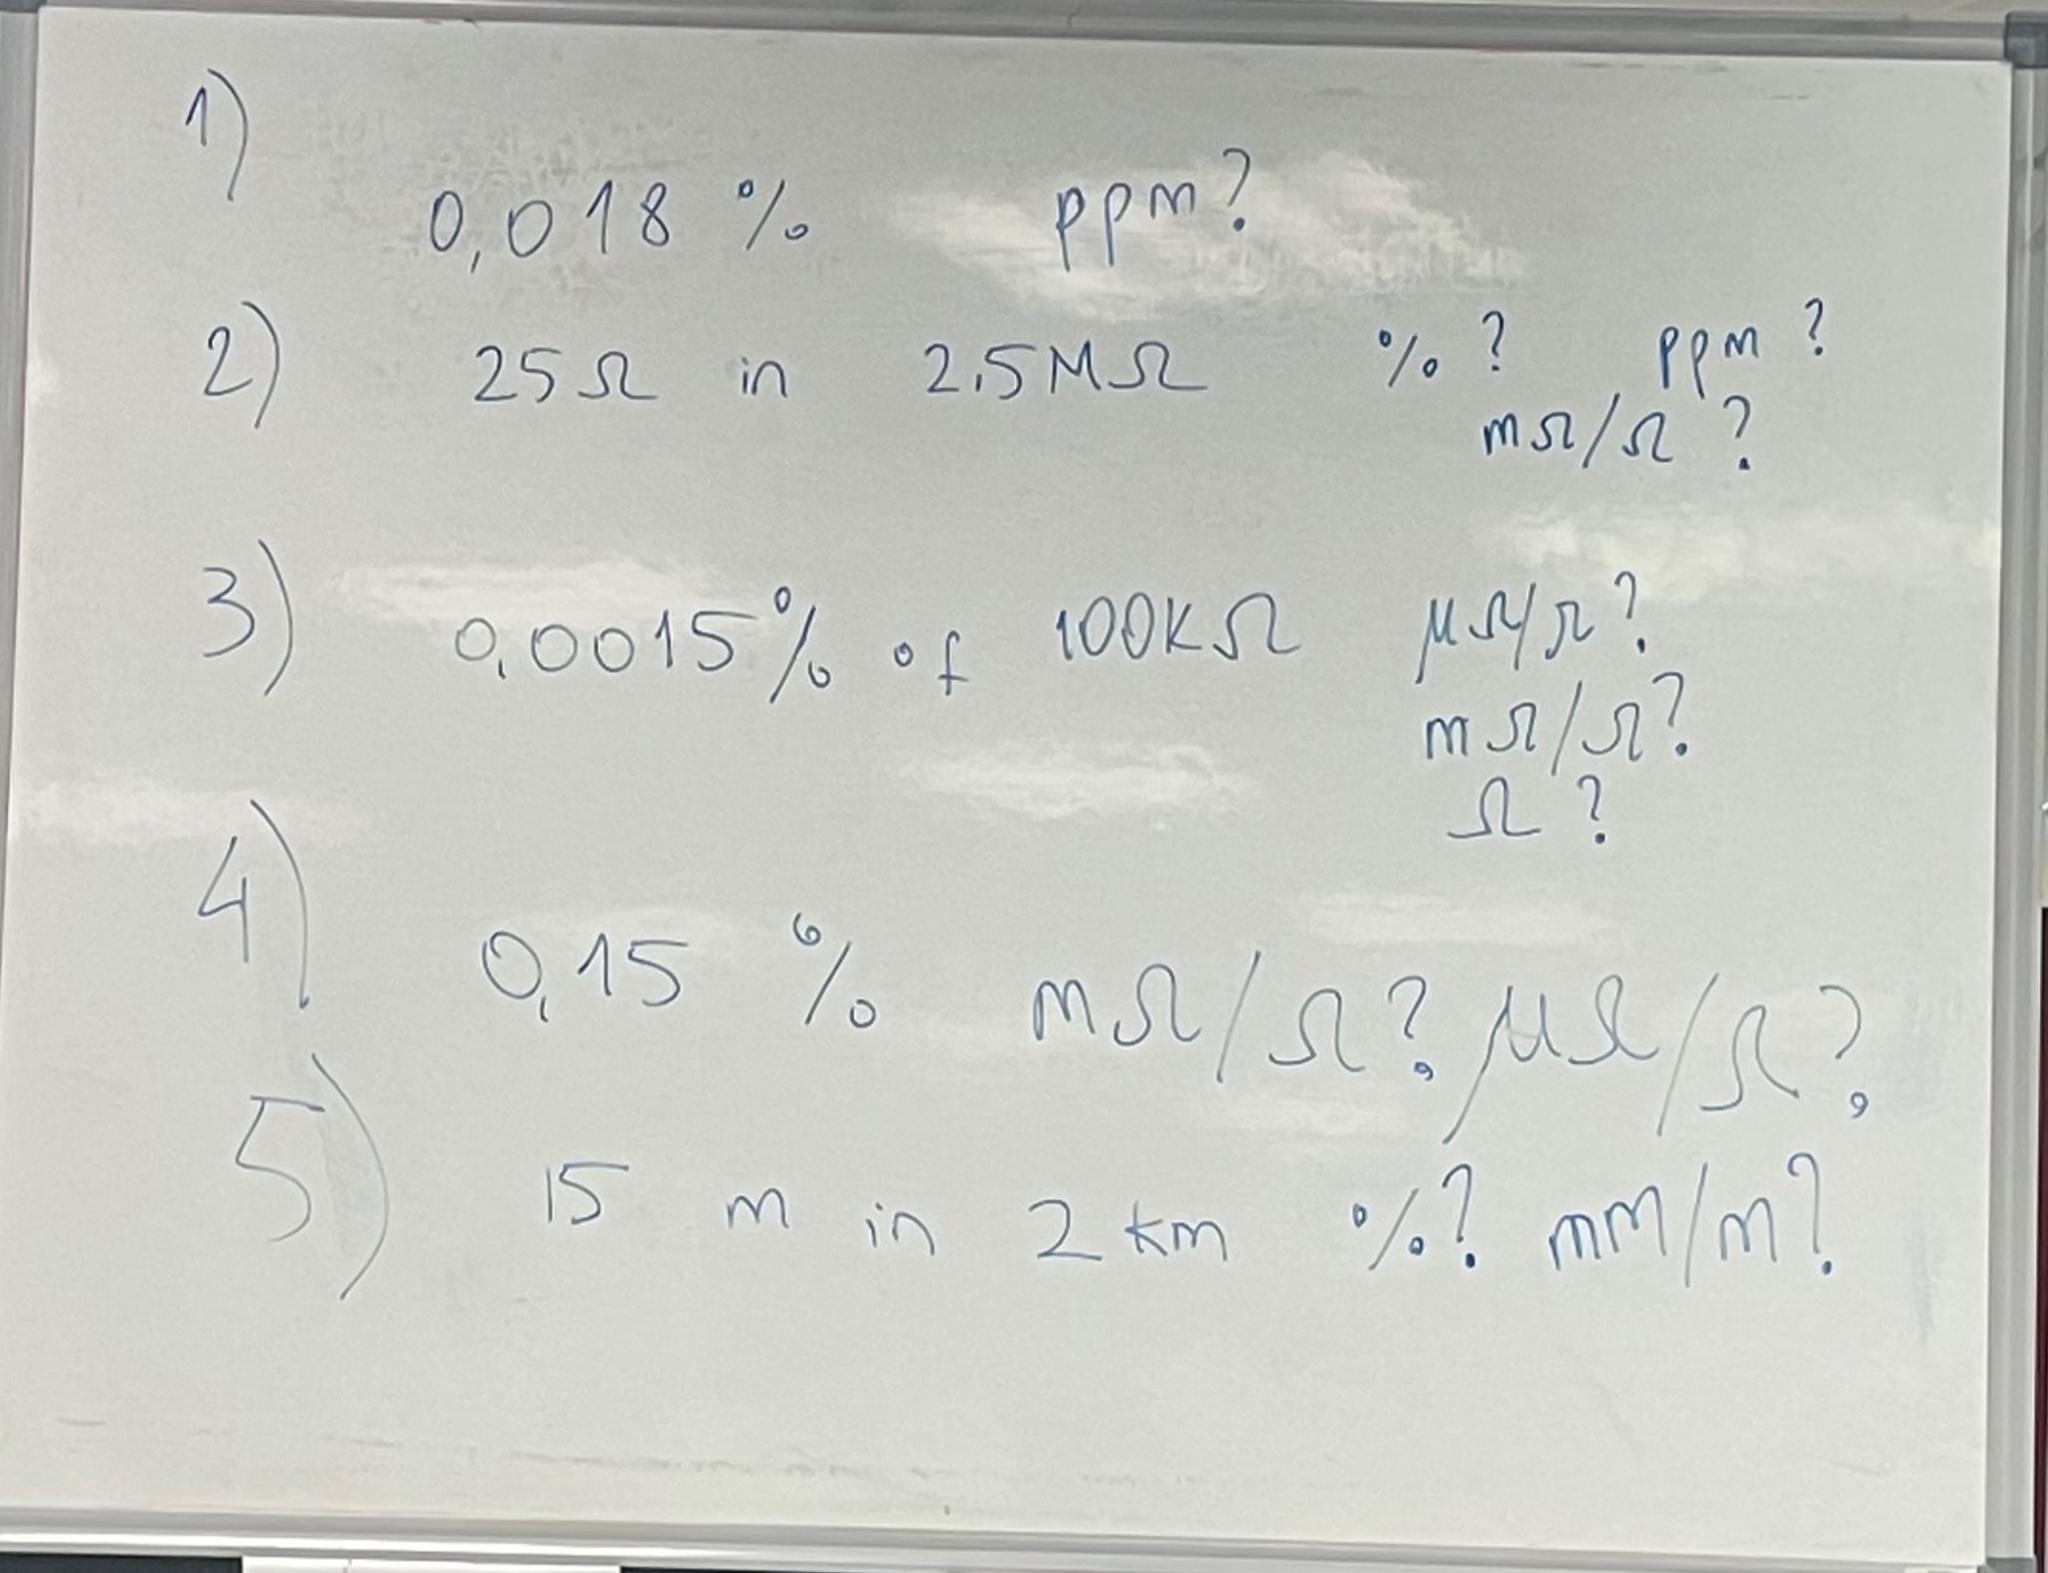 1)
0,018 % ppm?
2) 25Ω in 2,5MΩ %? ppm?
mΩ/Ω?
3) 0,0015% of 100KΩ μΩ/Ω?
mΩ/Ω?
Ω?
4) 0,15 % mΩ/Ω?, μΩ/Ω?,
5) 15 m in 2 km %? mm/m?